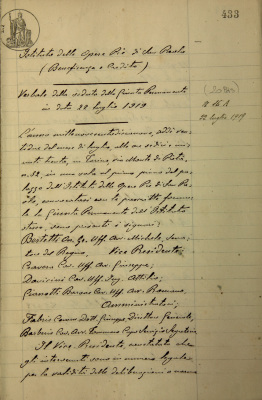 433
Istituto delle Opere Pie di San Paolo
(Beneficenza e Credito)
Verbale della seduta della Giunta Permanente
in data 22 luglio 1919
22 luglio 1919
L'anno millenovecentodiciannove, addì ven-
tidue del mese di luglio, alle ore sedici, mi-
nuti trenta, in Torino, via Monte di Pietà,
n. 32, in una sala al primo piano del pa-
lazzo dell'Istituto delle Opere Pie di San Pa-
olo, convocatasi
la Giunta Permanente dell'Istituto
sono presenti i signori:
Bertetti Av. Gr. Uff. Avv. Michele, Sena-
tore del Regno, Vice Presidente
Cravero Cav. Uff. Avv. Giuseppe,
Cav. Uff. Ing. Attilio,
Barone Cav. Uff. Avv. Romano,
Amministratori;
Fabris Comm. Dott. Giuseppe Direttore Generale,
Barberis Cav. Avv. Tommaso Capo Servizio Segreteria
Il Vice Presidente, constatato che
gli intervenuti sono in numero legale
per la validità delle deliberazioni a norma